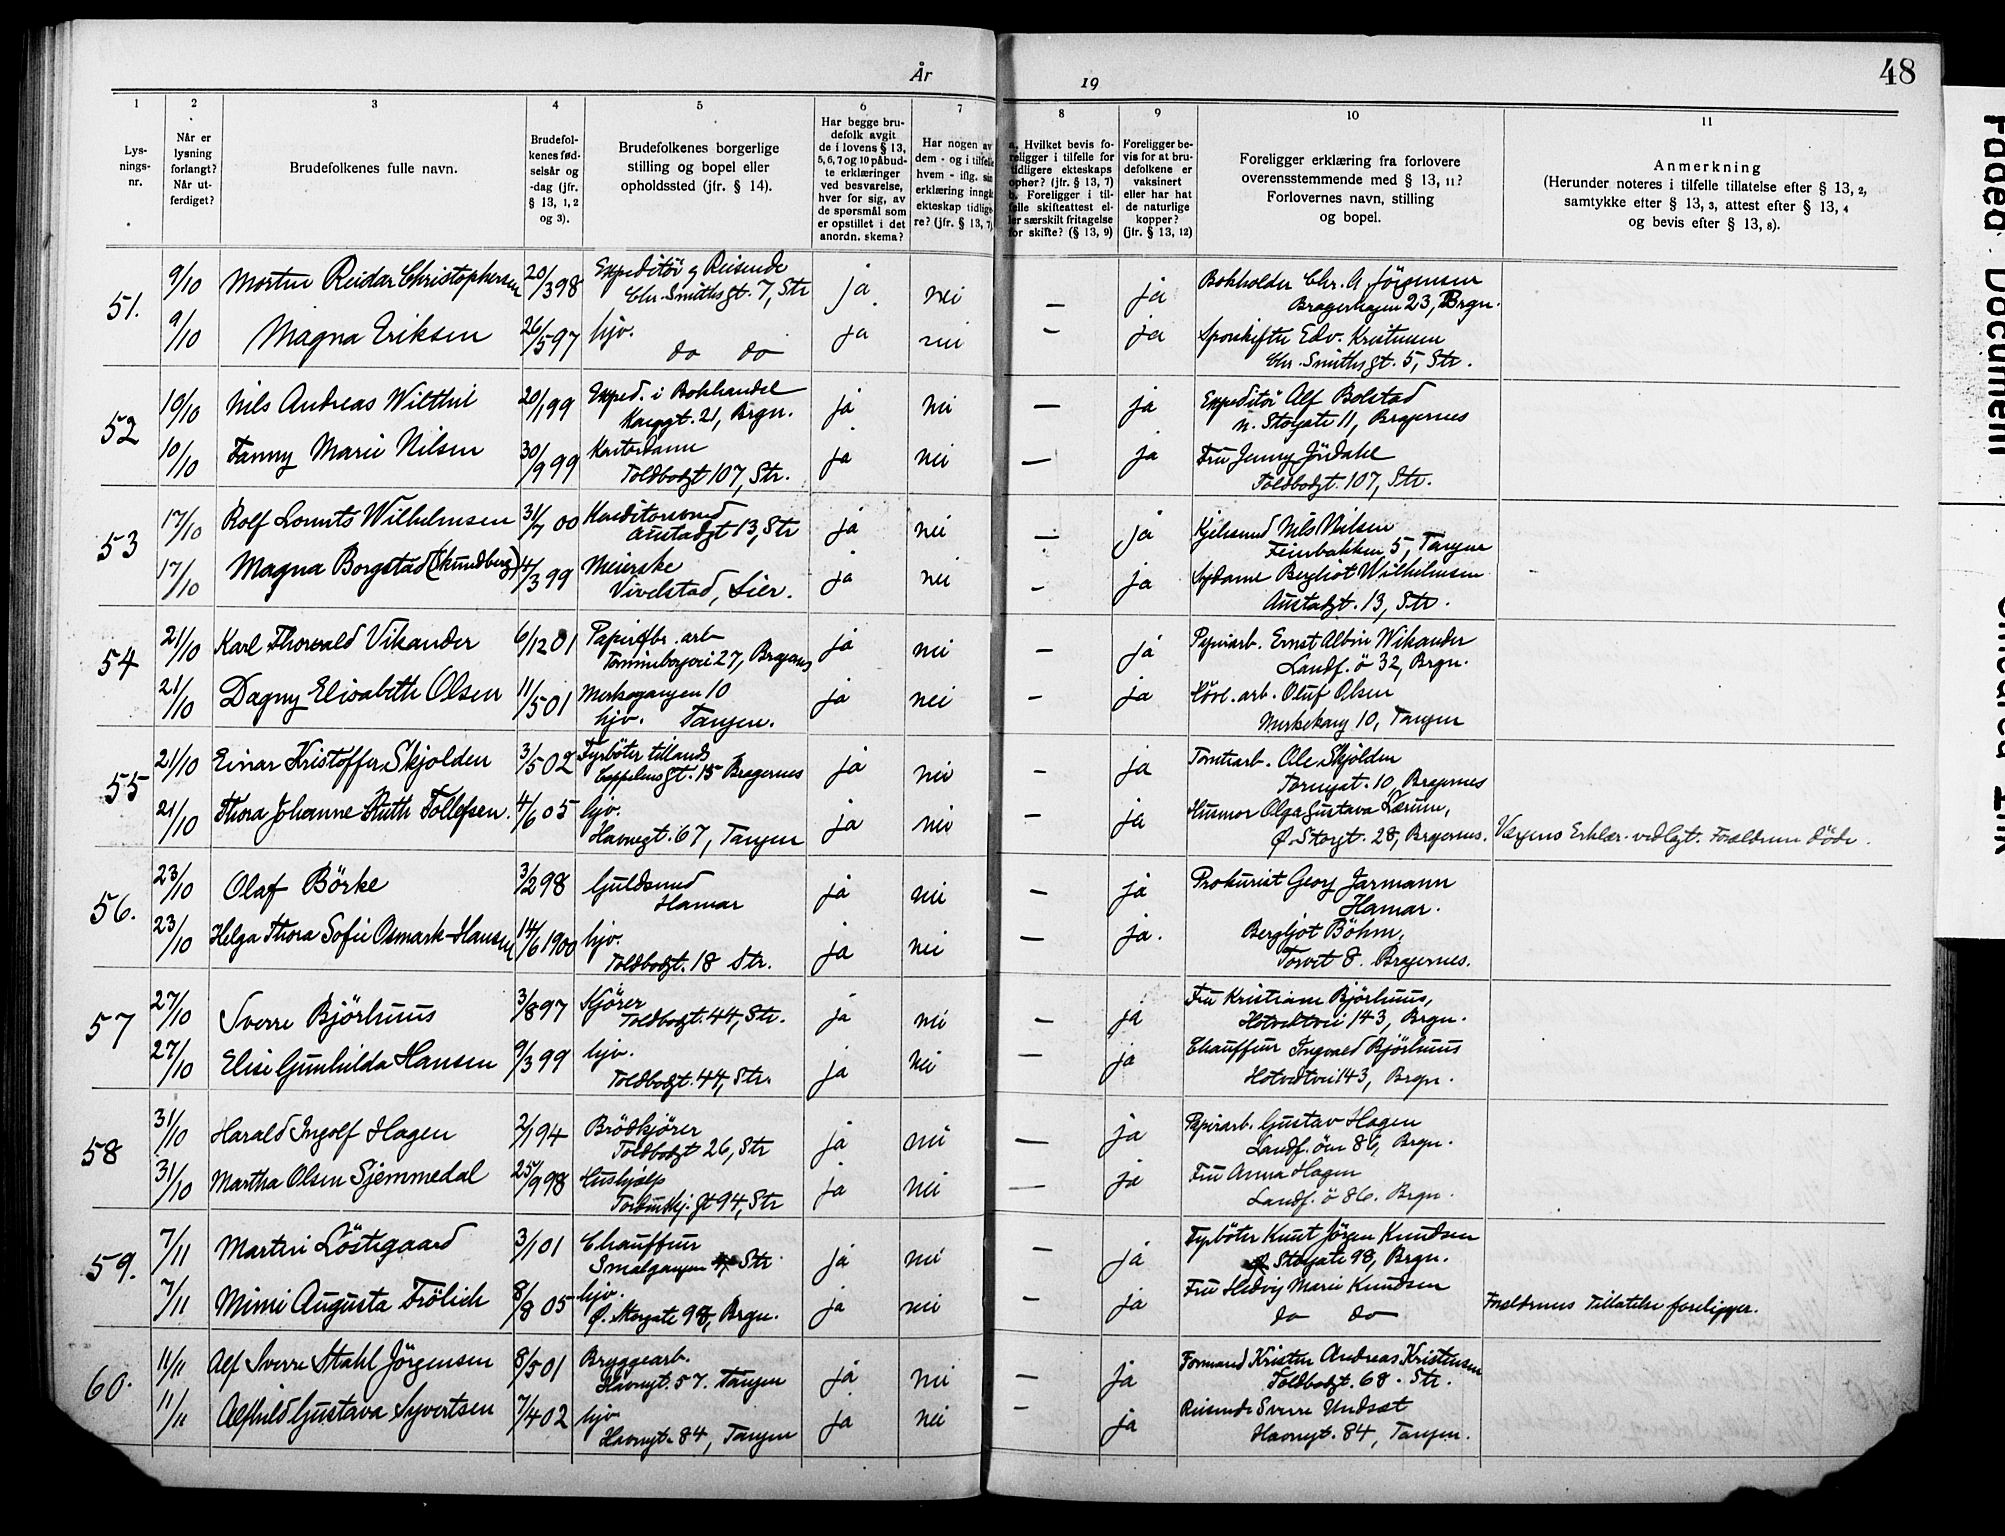 År
19
48
1
2
3
4
5
6
7
8
9
10
11
Lys-
nings-
nr.
Når er
lysning
forlangt?
Når ut-
ferdiget?
Brudefolkenes fulle navn.
Brudefol-
kenes fød-
selsår og
-dag (jfr.
§ 13, 1, 2
og 3).
Brudefolkenes borgerlige
stilling og bopel eller
opholdssted (jfr. § 14).
Har begge bru-
defolk avgit
de i lovens § 13,
5, 6, 7 og 10 påbud-
te erklæringer
ved besvarelse,
hver for sig, av
de spørsmål som
er opstillet i det
anordn. skema?
Har nogen av
dem - og i tilfelle
hvem - iflg. sin
erklæring inngåt
ekteskap tidlige-
re? (jfr. § 13, 7)
a. Hvilket bevis fo-
religger i tilfelle for
tidligere ekteskaps
ophør? (jfr. § 13, 7)
b. Foreligger i til-
felle skifteattest el-
ler særskilt fritagelse
for skifte? (§ 13, 9)
Foreligger be-
vis for at bru-
defolkene er
vaksinert
eller har hat
de naturlige
kopper?
(jfr. § 13, 12)
Foreligger erklæring fra forlovere
overensstemmende med § 13, 11?
Forlovernes navn, stilling
og bopel.
Anmerkning
(Herunder noteres i tilfelle tillatelse efter § 13, 2,
samtykke efter § 13, 3, attest efter § 13, 4
og bevis efter § 13, 8).
51. 9/10 Morten Reidar Christophersen 20/3 98 Expeditör & Reisende ja nei — ja Bokholder Chr. A Jörgensen
Chr. Smithsgt. 7, Str Bragerhagen 23, Brgn.
9/10 Magna Eriksen 26/5 97 hjv. ja nei — ja Edv. Kristensen
do do Chr. Smithsgt. 5, Str.
52 10/10 Nils Andreas Wilthil 20/1 99 Exped. i Bokhandel ja nei — ja Expeditör Alf Bolstad
Konggt. 21, Brgn. n. Storgate 11, Bragernes
10/10 Fanny Marie Nilsen 30/9 99 Kontordame ja nei — ja Fru Jenny Jördahl
Toldbodgt 107, Str. Toldbodgt. 107, Str.
53 17/10 Rolf Lorents Wilhelmsen 31/7 00 Konditorsvend ja nei — ja Kjelesmed Nils Nilsen
Austadgt 13, Str Feierbakken 5, Tangen
17/10 Magna Borgstad (Skundberg) 4/3 99 Meierske ja nei — ja Sydame Bergliot Wilhelmsen
Vivelstad, Lier. Austadgt. 13, Str.
54 21/10 Karl Thorvald Vikander 6/12 01 Papirfbr. arb ja nei — ja Papirarb. Ernst Albin Wikander
27, Bragernes Landf. ö 32, Brgn.
21/10 Dagny Elisabeth Olsen 11/5 01 Merkegangen 10 ja nei — ja Hövl. arb. Oluf Olsen
hjv. Tangen. Merkekang 10, Tangen
55 21/10 Einar Kristoffer Skjolden 3/5 02 Fyrböter tillands ja nei — ja Tomtearb. Ole Skjolden
Cappelensgt. 15 Bragernes Tornegat. 10, Bragernes
21/10 Thora Johanne Ruth Tollefsen. 4/6 05 hjv. ja nei — ja Husmor Olga Gustava Lærum,
Havnegt. 67, Tangen Ø. Storgt. 28, Bragernes. Vergens Erklær. vedlagt. Forældrene döde.
56. 23/10 Olaf Börke 3/2 98 Guldsmed ja nei — ja Prokurist Georg Jarmann
Hamar Hamar.
23/10 Helga Thora Sofie Osmark-Hansen 14/6 1900 hjv. ja nei — ja. Bergljot Böhm,
Toldbodgt. 18 Str. Torvet 8. Bragernes.
57 27/10 Sverre Björhuus 3/8 97 Kjörer ja nei — ja Fru Kristiane Björhuus,
Toldbodgt. 44, Str. Hotvedtvei 143, Brgn.
27/10 Elise Gunhilda Hansen 9/3 99 hjv. ja nei — ja Chauffeur Ingvald Björhuus
Toldbodgt. 44, Str. Hotvedtvei 143, Brgn.
58 31/10 Harald Ingolf Hagen 2/1 94 Brödkjörer ja nei — ja Papirarb. Gustav Hagen
Toldbodgt 26, Str Landf. öen 86, Brgn.
31/10 Martha Olsen Sjemmedal 25/9 98 Hushjælp ja nei — ja Fru Anna Hagen
94, Str Landf. ö 86. Brgn.
59. 7/11 Martin Löstegaard 3/1 01 Chauffeur ja nei — ja Fyrböter Knut Jörgen Knudsen
Smalgangen Str Storgate 98, Brgn.
7/11 Mimi Augusta Frölich 8/8 05 hjv. ja nei — ja Fru Hedvig Marie Knudsen
Ø. Storgate 98, Brgn. do do Forældrenes Tillatelse foreligger.
60. 11/11 Alf Sverre Stahl Jörgensen 8/5 01 Bryggearb. ja nei — ja Formand Kristen Andreas Kristensen
Havnegt. 57. Tangen Toldbodgt. 68. Str.
11/11 Alfhild Gustava Syvertsen 7/4 02 hjv ja nei — ja Reisende Sverre Undset
Havnegt. 84, Tangen Havnegt. 84, Tangen.
Faded Document